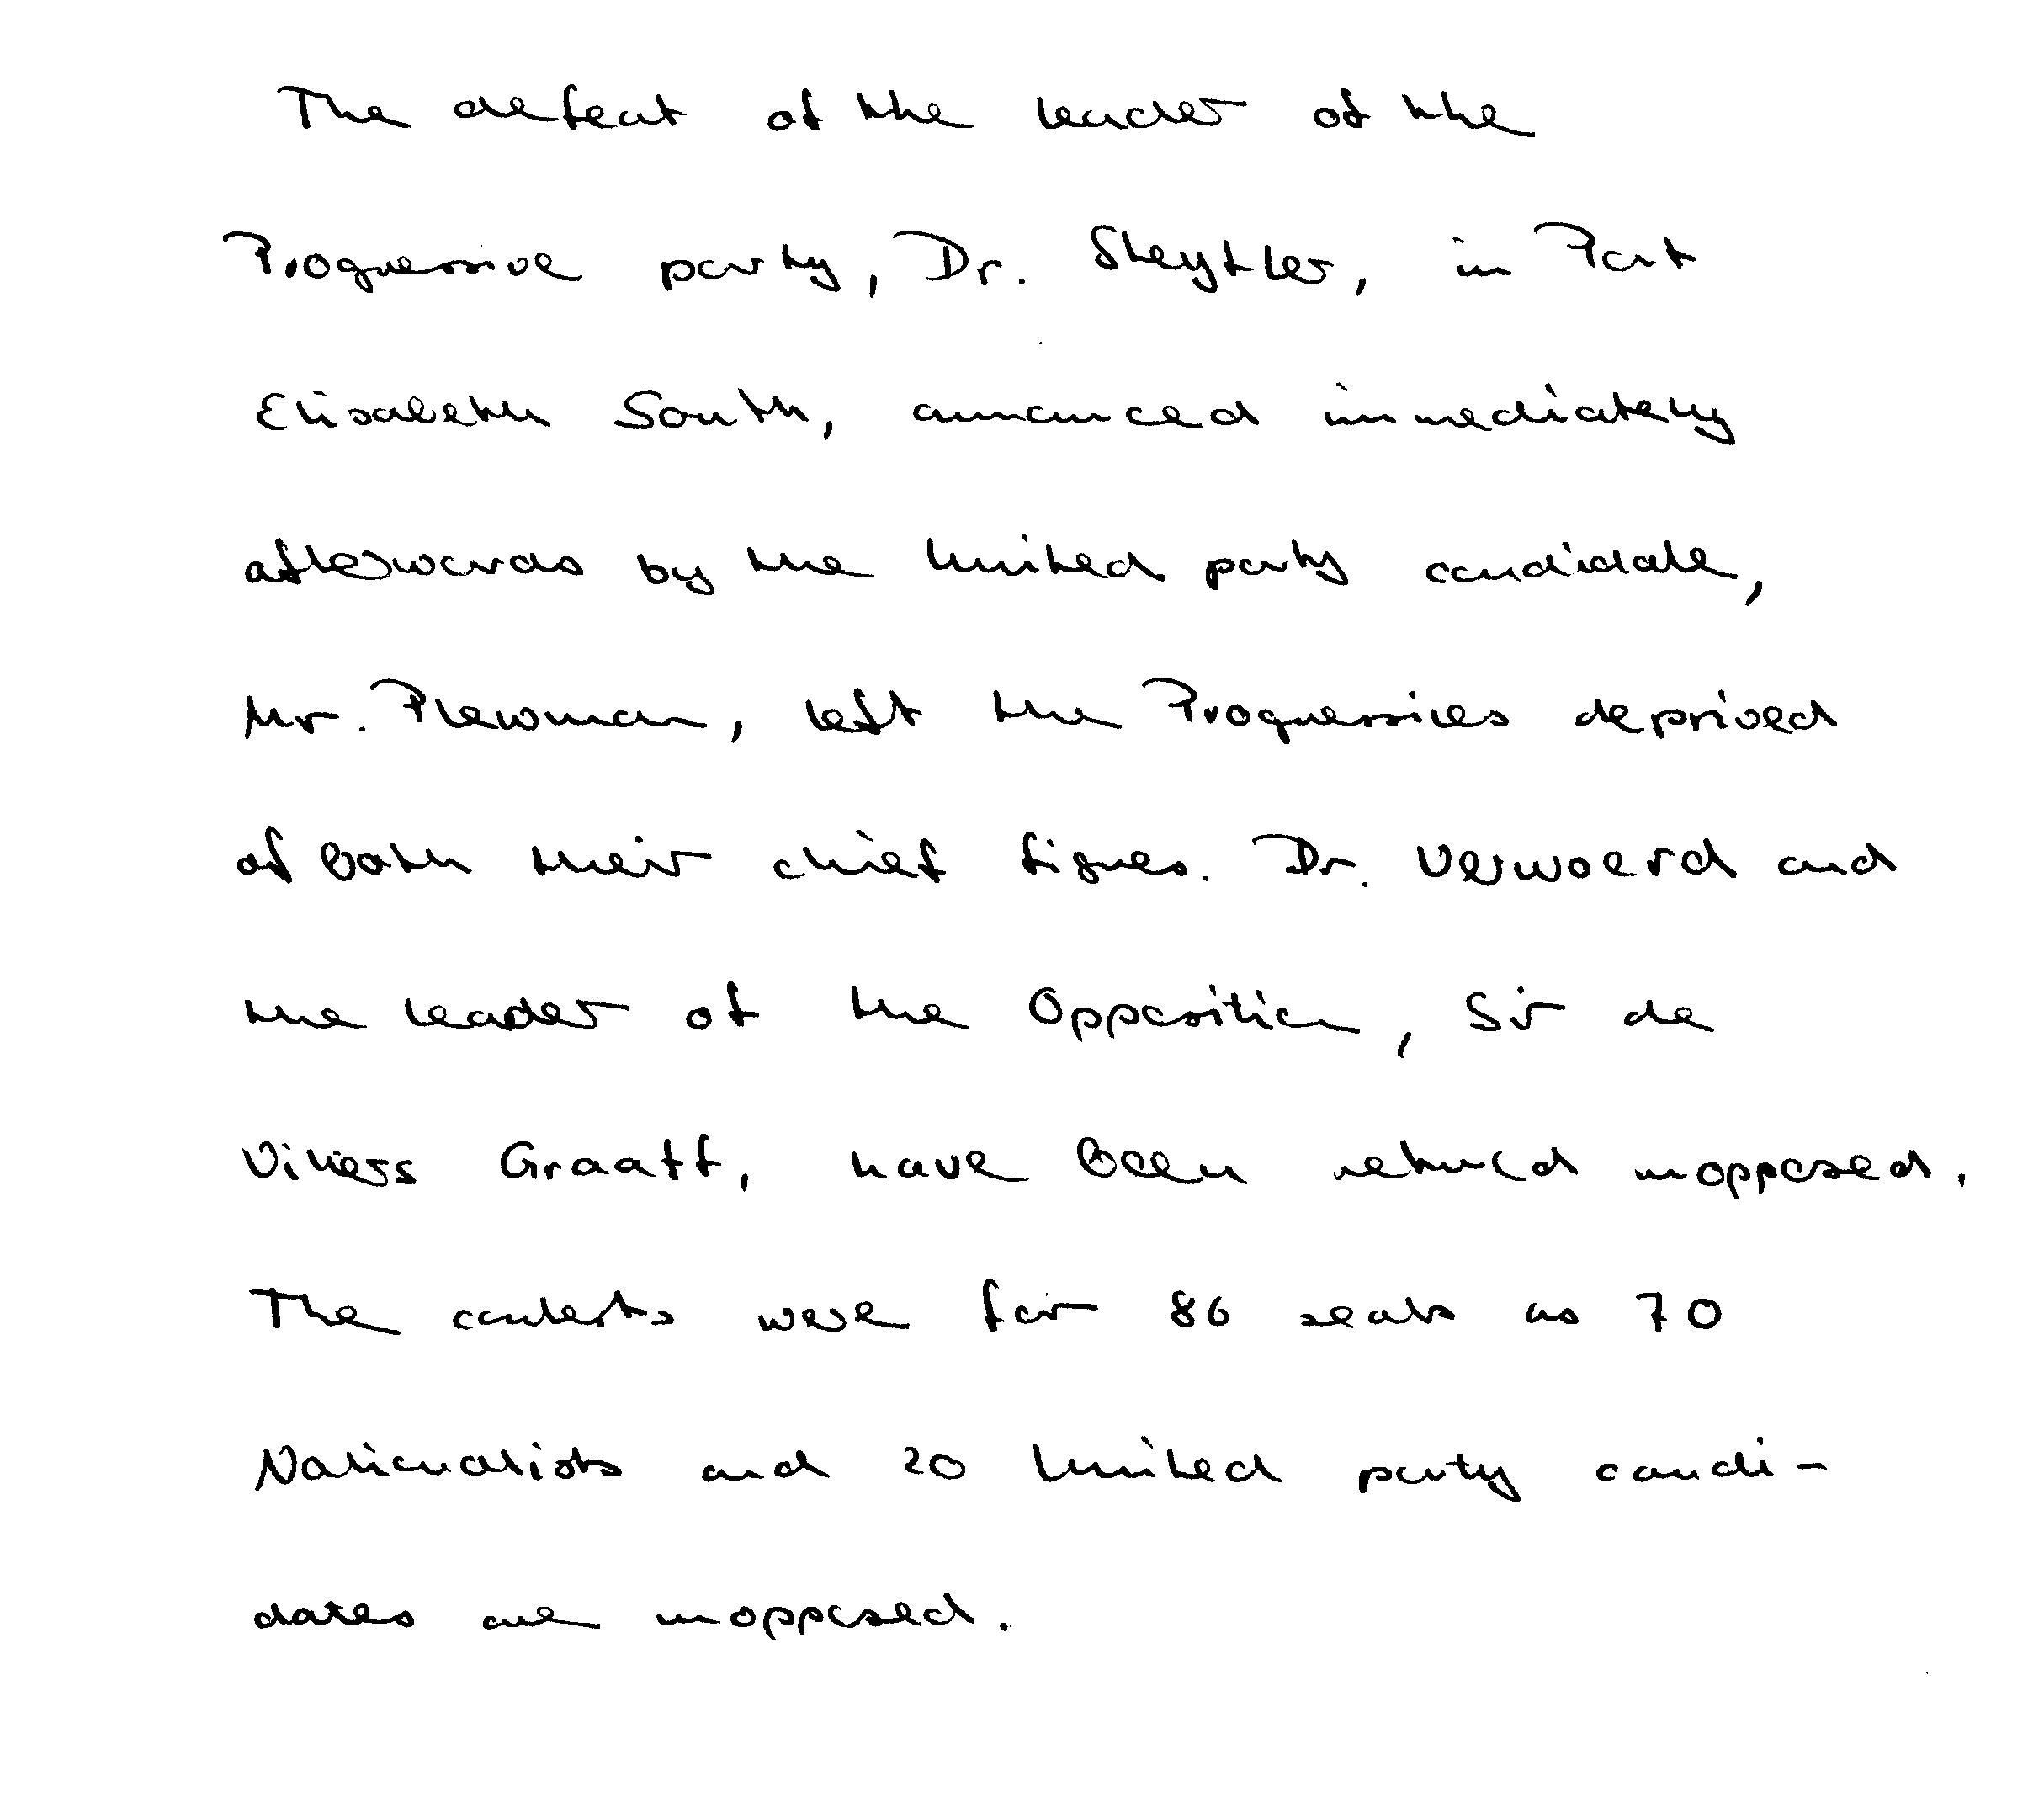 The defeat of the leader of the
Progressive party, Dr. Steytler, in Port
Elisabeth South, announced immediately
afterwards by the United party candidate,
Mr. Plewman, left the Progressives deprived
of both their chief figures. Dr. Verwoerd and
the leader of the Opposition, Sir de
Villiers Graaff, have been returned unopposed.
The contests were for 86 seats as 70
Nationalists and 20 United party candi-
dates are unopposed.